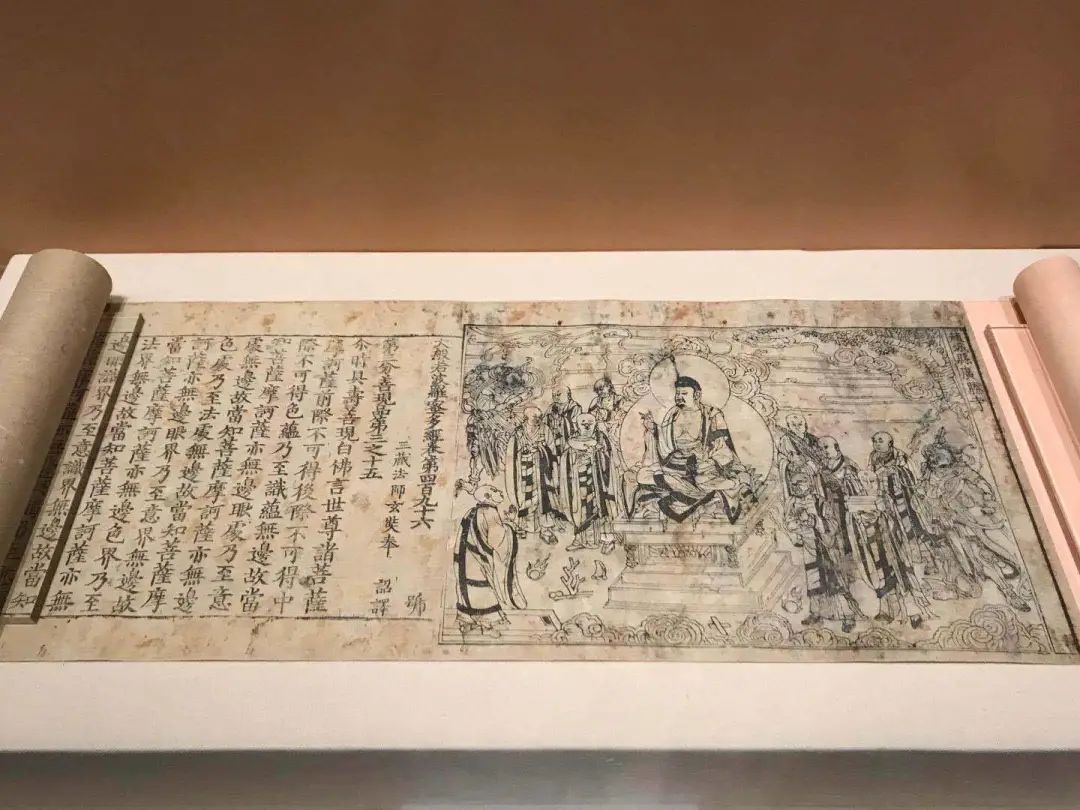 大般若波羅蜜多經卷第四百九十六 號
三藏法師玄奘奉 詔譯
第三分善現品第三之十五
尒時具壽善現白佛言世尊諸菩薩
摩訶薩前際不可得後際不可得中
際不可得色蘊乃至識蘊無邊故當
知菩薩摩訶薩亦無邊眼處乃至意
處無邊故當知菩薩摩訶薩亦無邊
色處乃至法處無邊故當知菩薩摩
訶薩亦無邊眼界乃至意界無邊故
當知菩薩摩訶薩亦無邊色界乃至
法界無邊故當知菩薩摩訶薩亦無
邊眼識界乃至意識界無邊故當知